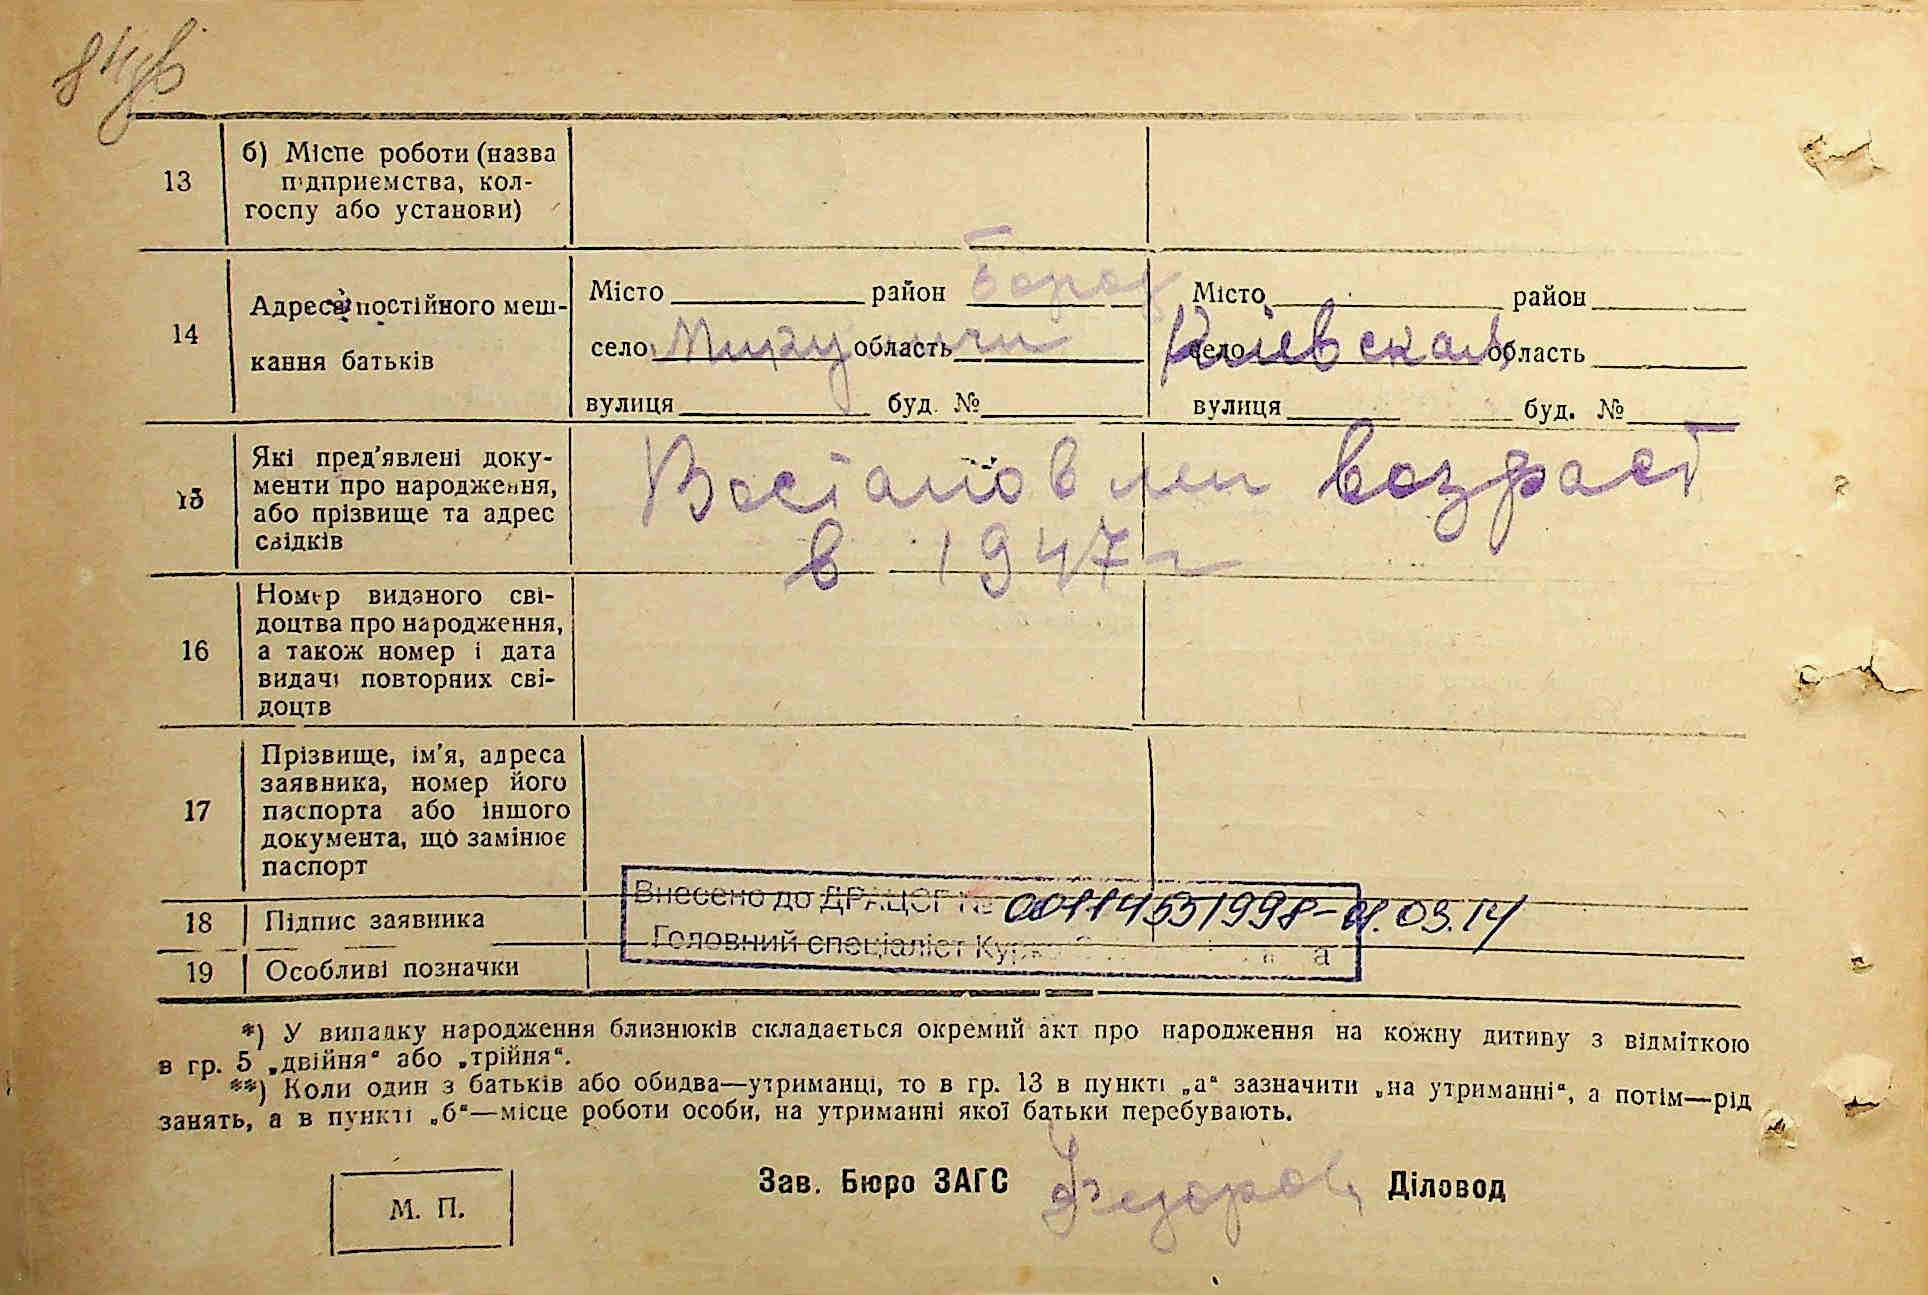 13
б) Місце роботи (назва
підприємства, кол-
госпу або установи)
14
Адреса постійного меш-
кання батьків
Місто район Бород
село Мику область личи
вулиця буд. №
Місто район
село Киевская область
вулиця буд. №
15
Які пред'явлені доку-
менти про народження,
або прізвище та адрес
свідків
Востановлен возраст
в 1947 г
16
Номер виданого сві-
доцтва про народження,
а також номер і дата
видачі повторних сві-
доцтв
17
Прізвище, ім'я, адреса
заявника, номер його
паспорта або іншого
документа, що замінює
паспорт
18 Підпис заявника
Внесено до ДРАЦСГ № 00114531998-01.03.14
Головний спеціаліст
19 Особливі позначки
*) У випадку народження близнюків складається окремий акт про народження на кожну дитину з відміткою
в гр. 5 „двійня“ або „трійня“.
**) Коли один з батьків або обидва—утриманці, то в гр. 13 в пункті „а“ зазначити „на утриманні“, а потім—рід
занять, а в пункті „б“—місце роботи особи, на утриманні якої батьки перебувають.
М. П.
Зав. Бюро ЗАГС Діловод